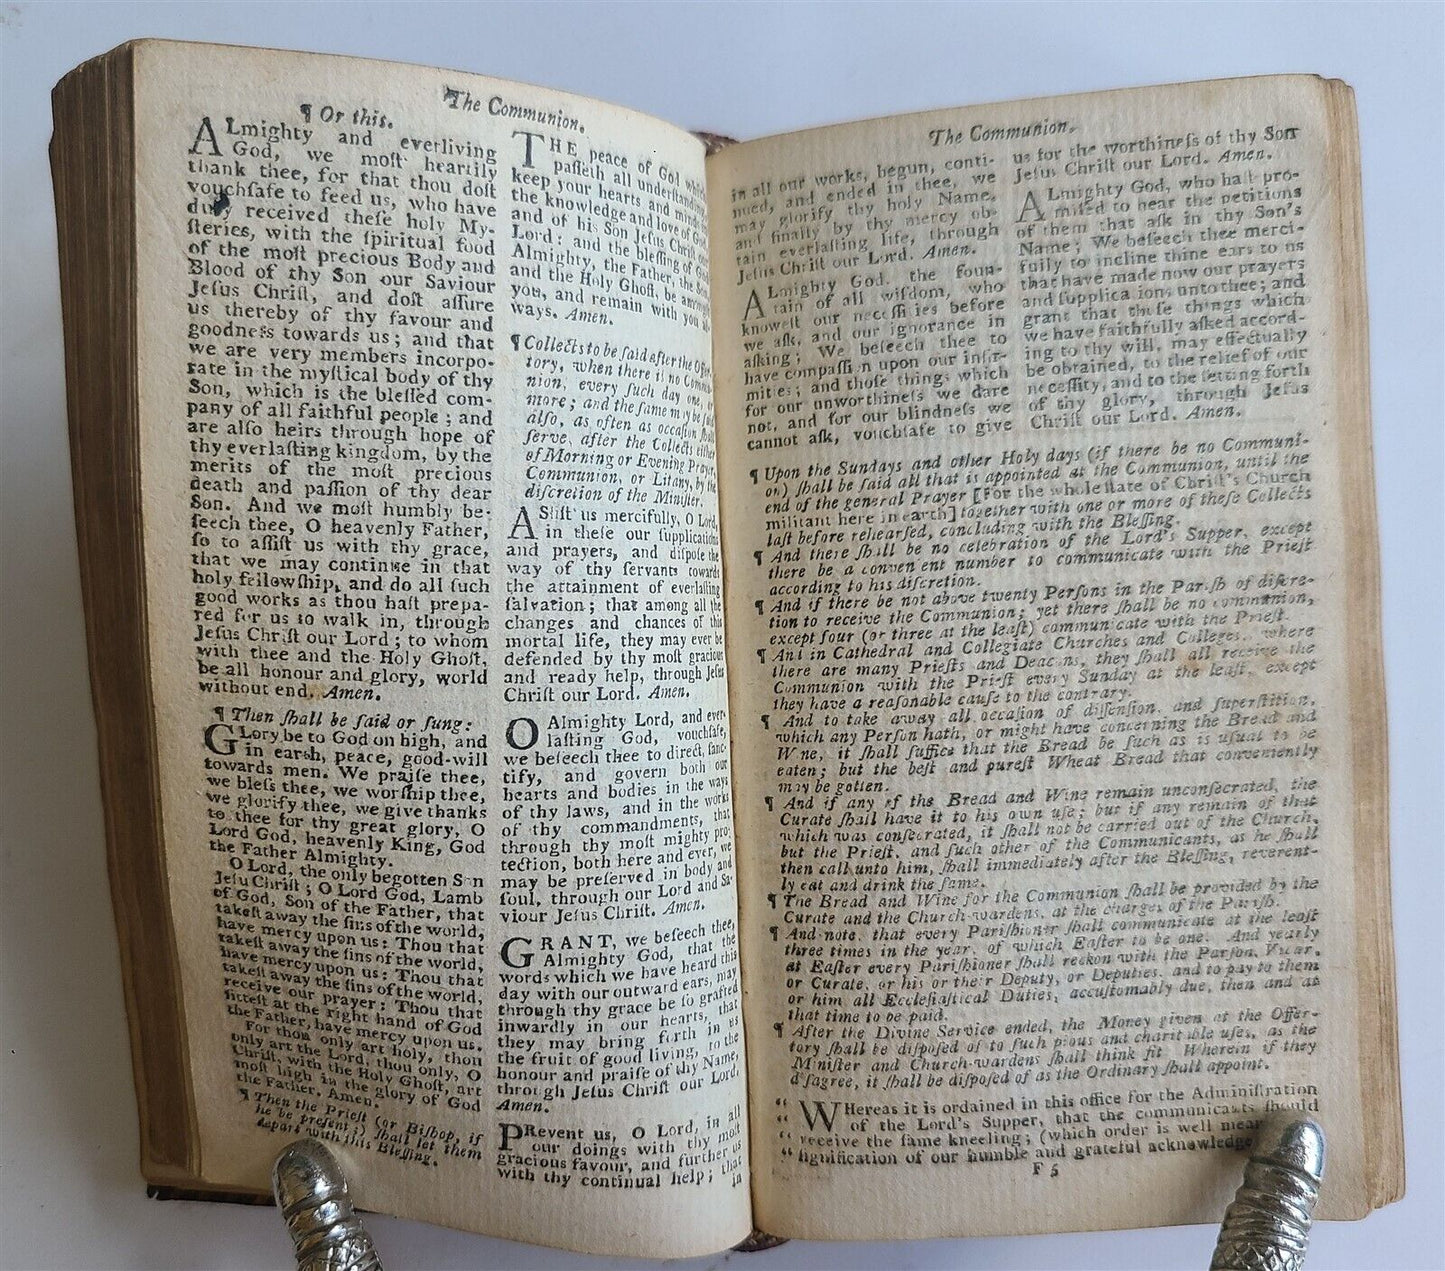 The Communion.
¶ Or this.
ALmighty and everliving
God, we moſt heartily
thank thee, for that thou doſt
vouchſafe to feed us, who have
duly received theſe holy My-
ſteries, with the ſpiritual food
of the moſt precious Body and
Blood of thy Son our Saviour
Jeſus Chriſt, and doſt aſſure
us thereby of thy favour and
goodneſs towards us; and that
we are very members incorpo-
rate in the myſtical body of thy
Son, which is the bleſſed com-
pany of all faithful people; and
are alſo heirs through hope of
thy everlaſting kingdom, by the
merits of the moſt precious
death and paſſion of thy dear
Son. And we moſt humbly be-
ſeech thee, O heavenly Father,
ſo to aſſiſt us with thy grace,
that we may continue in that
holy fellowſhip, and do all ſuch
good works as thou haſt prepa-
red for us to walk in, through
Jeſus Chriſt our Lord; to whom
with thee and the Holy Ghoſt,
be all honour and glory, world
without end. Amen.
¶ Then ſhall be ſaid or ſung:
GLory be to God on high, and
in earth, peace, good-will
towards men. We praiſe thee,
we bleſs thee, we worſhip thee,
we glorify thee, we give thanks
to thee for thy great glory, O
Lord God, heavenly King, God
the Father Almighty.
O Lord, the only begotten Son
Jeſu Chriſt; O Lord God, Lamb
of God, Son of the Father, that
takeſt away the ſins of the world,
have mercy upon us: Thou that
takeſt away the ſins of the world,
have mercy upon us: Thou that
takeſt away the ſins of the world,
receive our prayer: Thou that
ſitteſt at the right hand of God
the Father, have mercy upon us.
For thou only art holy, thou
only art the Lord, thou only, O
Chriſt, with the Holy Ghoſt, art
moſt high in the glory of God
the Father. Amen.
¶ Then the Prieſt (or Biſhop, if
he be preſent) ſhall let them
depart with this Bleſſing.
THE peace of God which
paſſeth all underſtanding,
keep your hearts and minds in
the knowledge and love of God,
and of his Son Jeſus Chriſt our
Lord: and the bleſſing of God
Almighty, the Father, the Son,
and the Holy Ghoſt, be amongſt
you, and remain with you al-
ways. Amen.
¶ Collects to be ſaid after the Offer-
tory, when there is no Commu-
nion, every ſuch day one, or
more; and the ſame may be ſaid
alſo, as often as occaſion ſhall
ſerve, after the Collects either
of Morning or Evening Prayer,
Communion, or Litany, by the
diſcretion of the Miniſter.
ASſiſt us mercifully, O Lord,
in theſe our ſupplications
and prayers, and diſpoſe the
way of thy ſervants towards
the attainment of everlaſting
ſalvation; that among all the
changes and chances of this
mortal life, they may ever be
defended by thy moſt gracious
and ready help, through Jeſus
Chriſt our Lord. Amen.
O Almighty Lord, and ever-
laſting God, vouchſafe,
we beſeech thee to direct, ſanc-
tify, and govern both our
hearts and bodies in the ways
of thy laws, and in the works
of thy commandments, that
through thy moſt mighty pro-
tection, both here and ever, we
may be preſerved in body and
ſoul, through our Lord and Sa-
viour Jeſus Chriſt. Amen.
GRANT, we beſeech thee,
Almighty God, that the
words which we have heard this
day with our outward ears, may
through thy grace be ſo grafted
inwardly in our hearts, that
they may bring forth in us
the fruit of good living, to the
honour and praiſe of thy Name,
through Jeſus Chriſt our Lord.
Amen.
PRevent us, O Lord, in all
our doings with thy moſt
gracious favour, and further us
with thy continual help; that
in
The Communion.
in all our works, begun, conti-
nued, and ended in thee, we
may glorify thy holy Name,
and finally by thy mercy ob-
tain everlaſting life, through
Jeſus Chriſt our Lord. Amen.
ALmighty God, the foun-
tain of all wiſdom, who
knoweſt our neceſſities before
we aſk, and our ignorance in
aſking; We beſeech thee to
have compaſſion upon our infir-
mities; and thoſe things which
for our unworthineſs we dare
not, and for our blindneſs we
cannot aſk, vouchſafe to give
us for the worthineſs of thy Son
Jeſus Chriſt our Lord. Amen.
ALmighty God, who haſt pro-
miſed to hear the petitions
of them that aſk in thy Son's
Name; We beſeech thee merci-
fully to incline thine ears to us
that have made now our prayers
and ſupplications unto thee; and
grant that thoſe things which
we have faithfully aſked accord-
ing to thy will, may effectually
be obtained, to the relief of our
neceſſity, and to the ſetting forth
of thy glory, through Jeſus
Chriſt our Lord. Amen.
¶ Upon the Sundays and other Holy days (if there be no Communi-
on) ſhall be ſaid all that is appointed at the Communion, until the
end of the general Prayer [For the whole ſtate of Chriſt's Church
militant here in earth] together with one or more of theſe Collects
laſt before rehearſed, concluding with the Bleſſing.
¶ And there ſhall be no celebration of the Lord's Supper, except
there be a convenient number to communicate with the Prieſt
according to his diſcretion.
¶ And if there be not above twenty Perſons in the Pariſh of diſcre-
tion to receive the Communion; yet there ſhall be no communion,
except four (or three at the leaſt) communicate with the Prieſt.
¶ And in Cathedral and Collegiate Churches and Colleges, where
there are many Prieſts and Deacons, they ſhall all receive the
Communion with the Prieſt every Sunday at the leaſt, except
they have a reaſonable cauſe to the contrary.
¶ And to take away all occaſion of diſſenſion, and ſuperſtition,
which any Perſon hath, or might have concerning the Bread and
Wine, it ſhall ſuffice that the Bread be ſuch as is uſual to be
eaten; but the beſt and pureſt Wheat Bread that conveniently
may be gotten.
¶ And if any of the Bread and Wine remain unconſecrated, the
Curate ſhall have it to his own uſe; but if any remain of that
which was conſecrated, it ſhall not be carried out of the Church,
but the Prieſt, and ſuch other of the Communicants, as he ſhall
then call unto him, ſhall immediately after the Bleſſing, reverent-
ly eat and drink the ſame.
¶ The Bread and Wine for the Communion ſhall be provided by the
Curate and the Church-wardens, at the charges of the Pariſh.
¶ And note, that every Pariſhioner ſhall communicate at the leaſt
three times in the year, of which Eaſter to be one. And yearly
at Eaſter every Pariſhioner ſhall reckon with the Parſon, Vicar,
or Curate, or his or their Deputy, or Deputies, and to pay to them
or him all Eccleſiaſtical Duties, accuſtomably due, then and at
that time to be paid.
¶ After the Divine Service ended, the Money given at the Offer-
tory ſhall be diſpoſed of to ſuch pious and charitable uſes, as the
Miniſter and Church-wardens ſhall think fit Wherein if they
diſagree, it ſhall be diſpoſed of as the Ordinary ſhall appoint.
“ WHereas it is ordained in this office for the Adminiſtration
“ of the Lord's Supper, that the communicants ſhould
“ receive the ſame kneeling; (which order is well mean
“ ſignification of our humble and grateful acknowledge
F 5